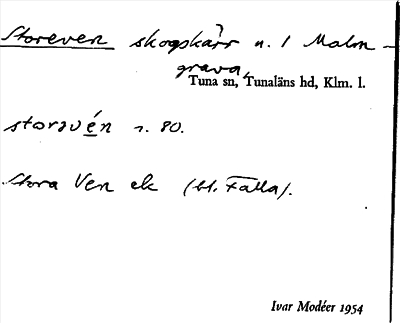 Storeven skogskärr n. l Malm-
grava,
Tuna sn, Tunaläns hd, Klm. l.
storəvén s. 80.
Stora Ven ek (bl. Falla).
Ivar Modéer 1954